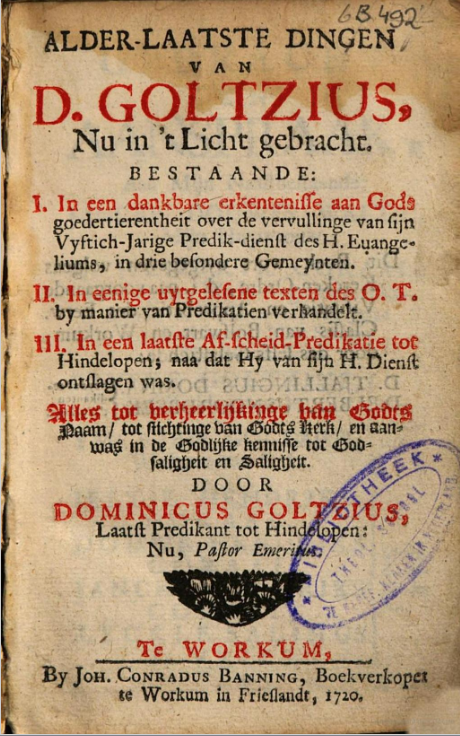 6B 492
ALDER-LAATSTE DINGEN
VAN
D. GOLTZIUS,
Nu in 't Licht gebracht.
BESTAANDE:
I. In een dankbare erkentenisse aan Gods
goedertierentheit over de vervullinge van sijn
Vyftich-Jarige Predik-dienst des H. Euange-
liums, in drie besondere Gemeynten.
II. In eenige uytgelesene texten des O. T.
by manier van Predikatien verhandelt.
III. In een laatste Af-scheid-Predikatie tot
Hindelopen; naa dat Hy van sijn H. Dienst
ontslagen was.
Alles tot verheerlijkinge van Godts
Naam/ tot stichtinge van Godts Kerk/ en aan-
was in de Godlijke kennisse tot God-
saligheit en Saligheit.
DOOR
DOMINICUS GOLTZIUS,
Laatst Predikant tot Hindelopen:
Nu, Pastor Emeritus.
BIBLIOTHEEK
THEOL. SCHOOL
TE WORKUM,
By JOH. CONRADUS BANNING, Boekverkoper
te Workum in Frieslandt, 1720.